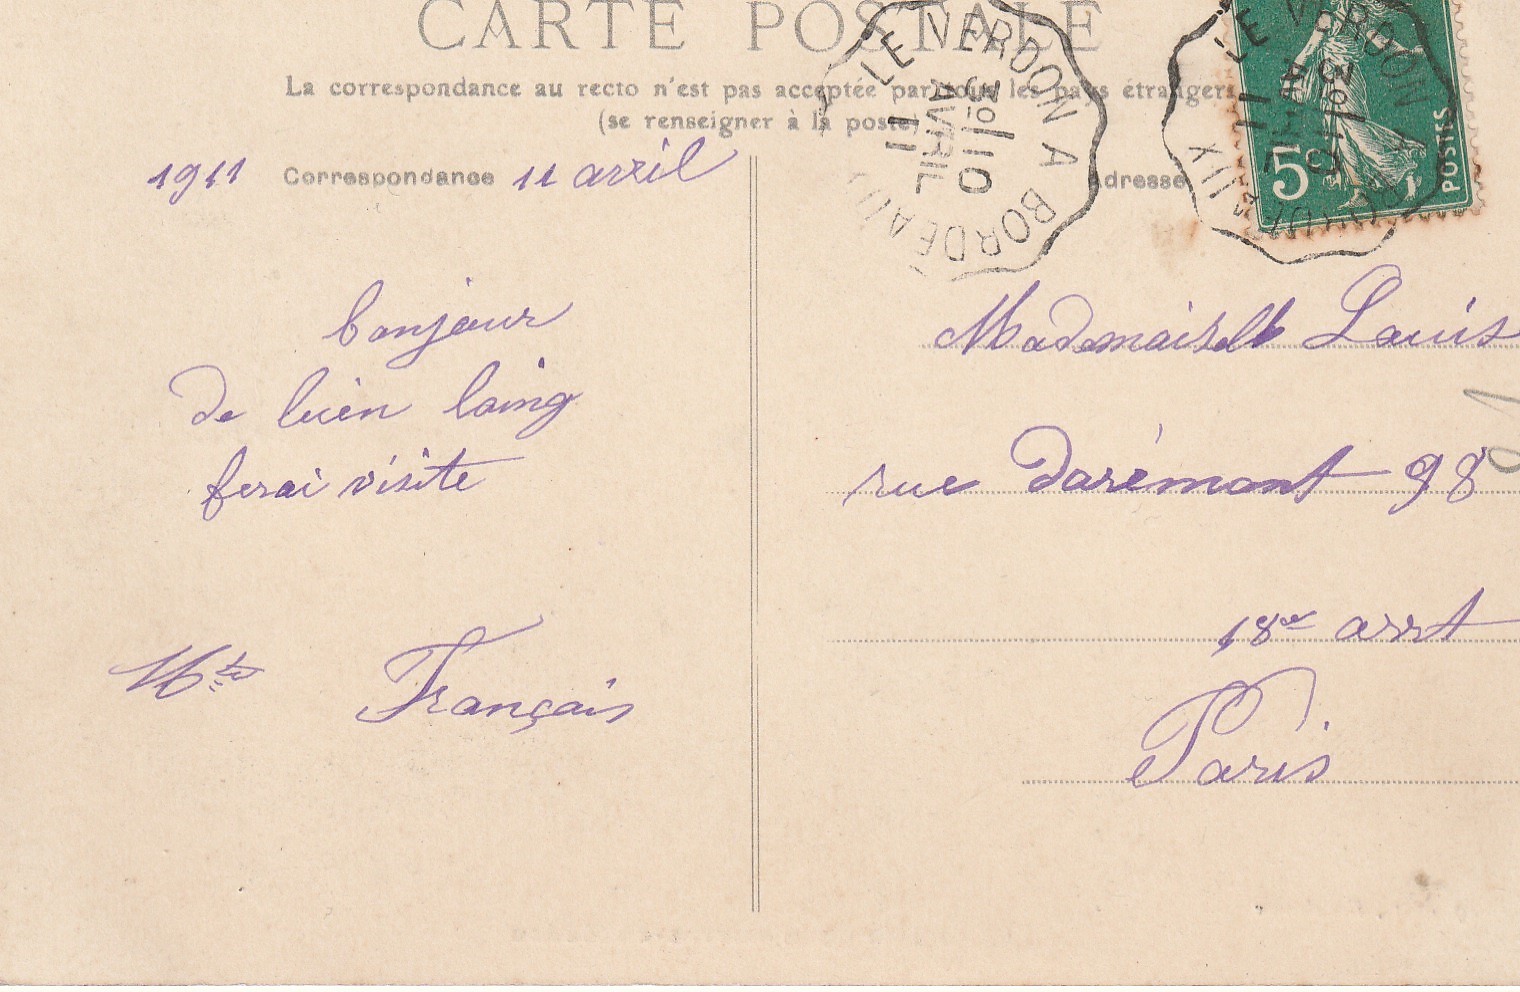 CARTE POSTALE
La correspondance au recto n'est pas acceptée par tous les pays étrangers
(se renseigner à la poste)
1911 Correspondance 11 avril
Adresse
LE VERDON A BORDEAUX
3º/10
AVRIL
11
LE VERDON A BORDEAUX
3º/10
AVRIL
11
5c
POSTES
bonjour
de bien loing
ferai visite
François
Mademaiselle Louis
rue Darémont 98
18e arrt
Paris